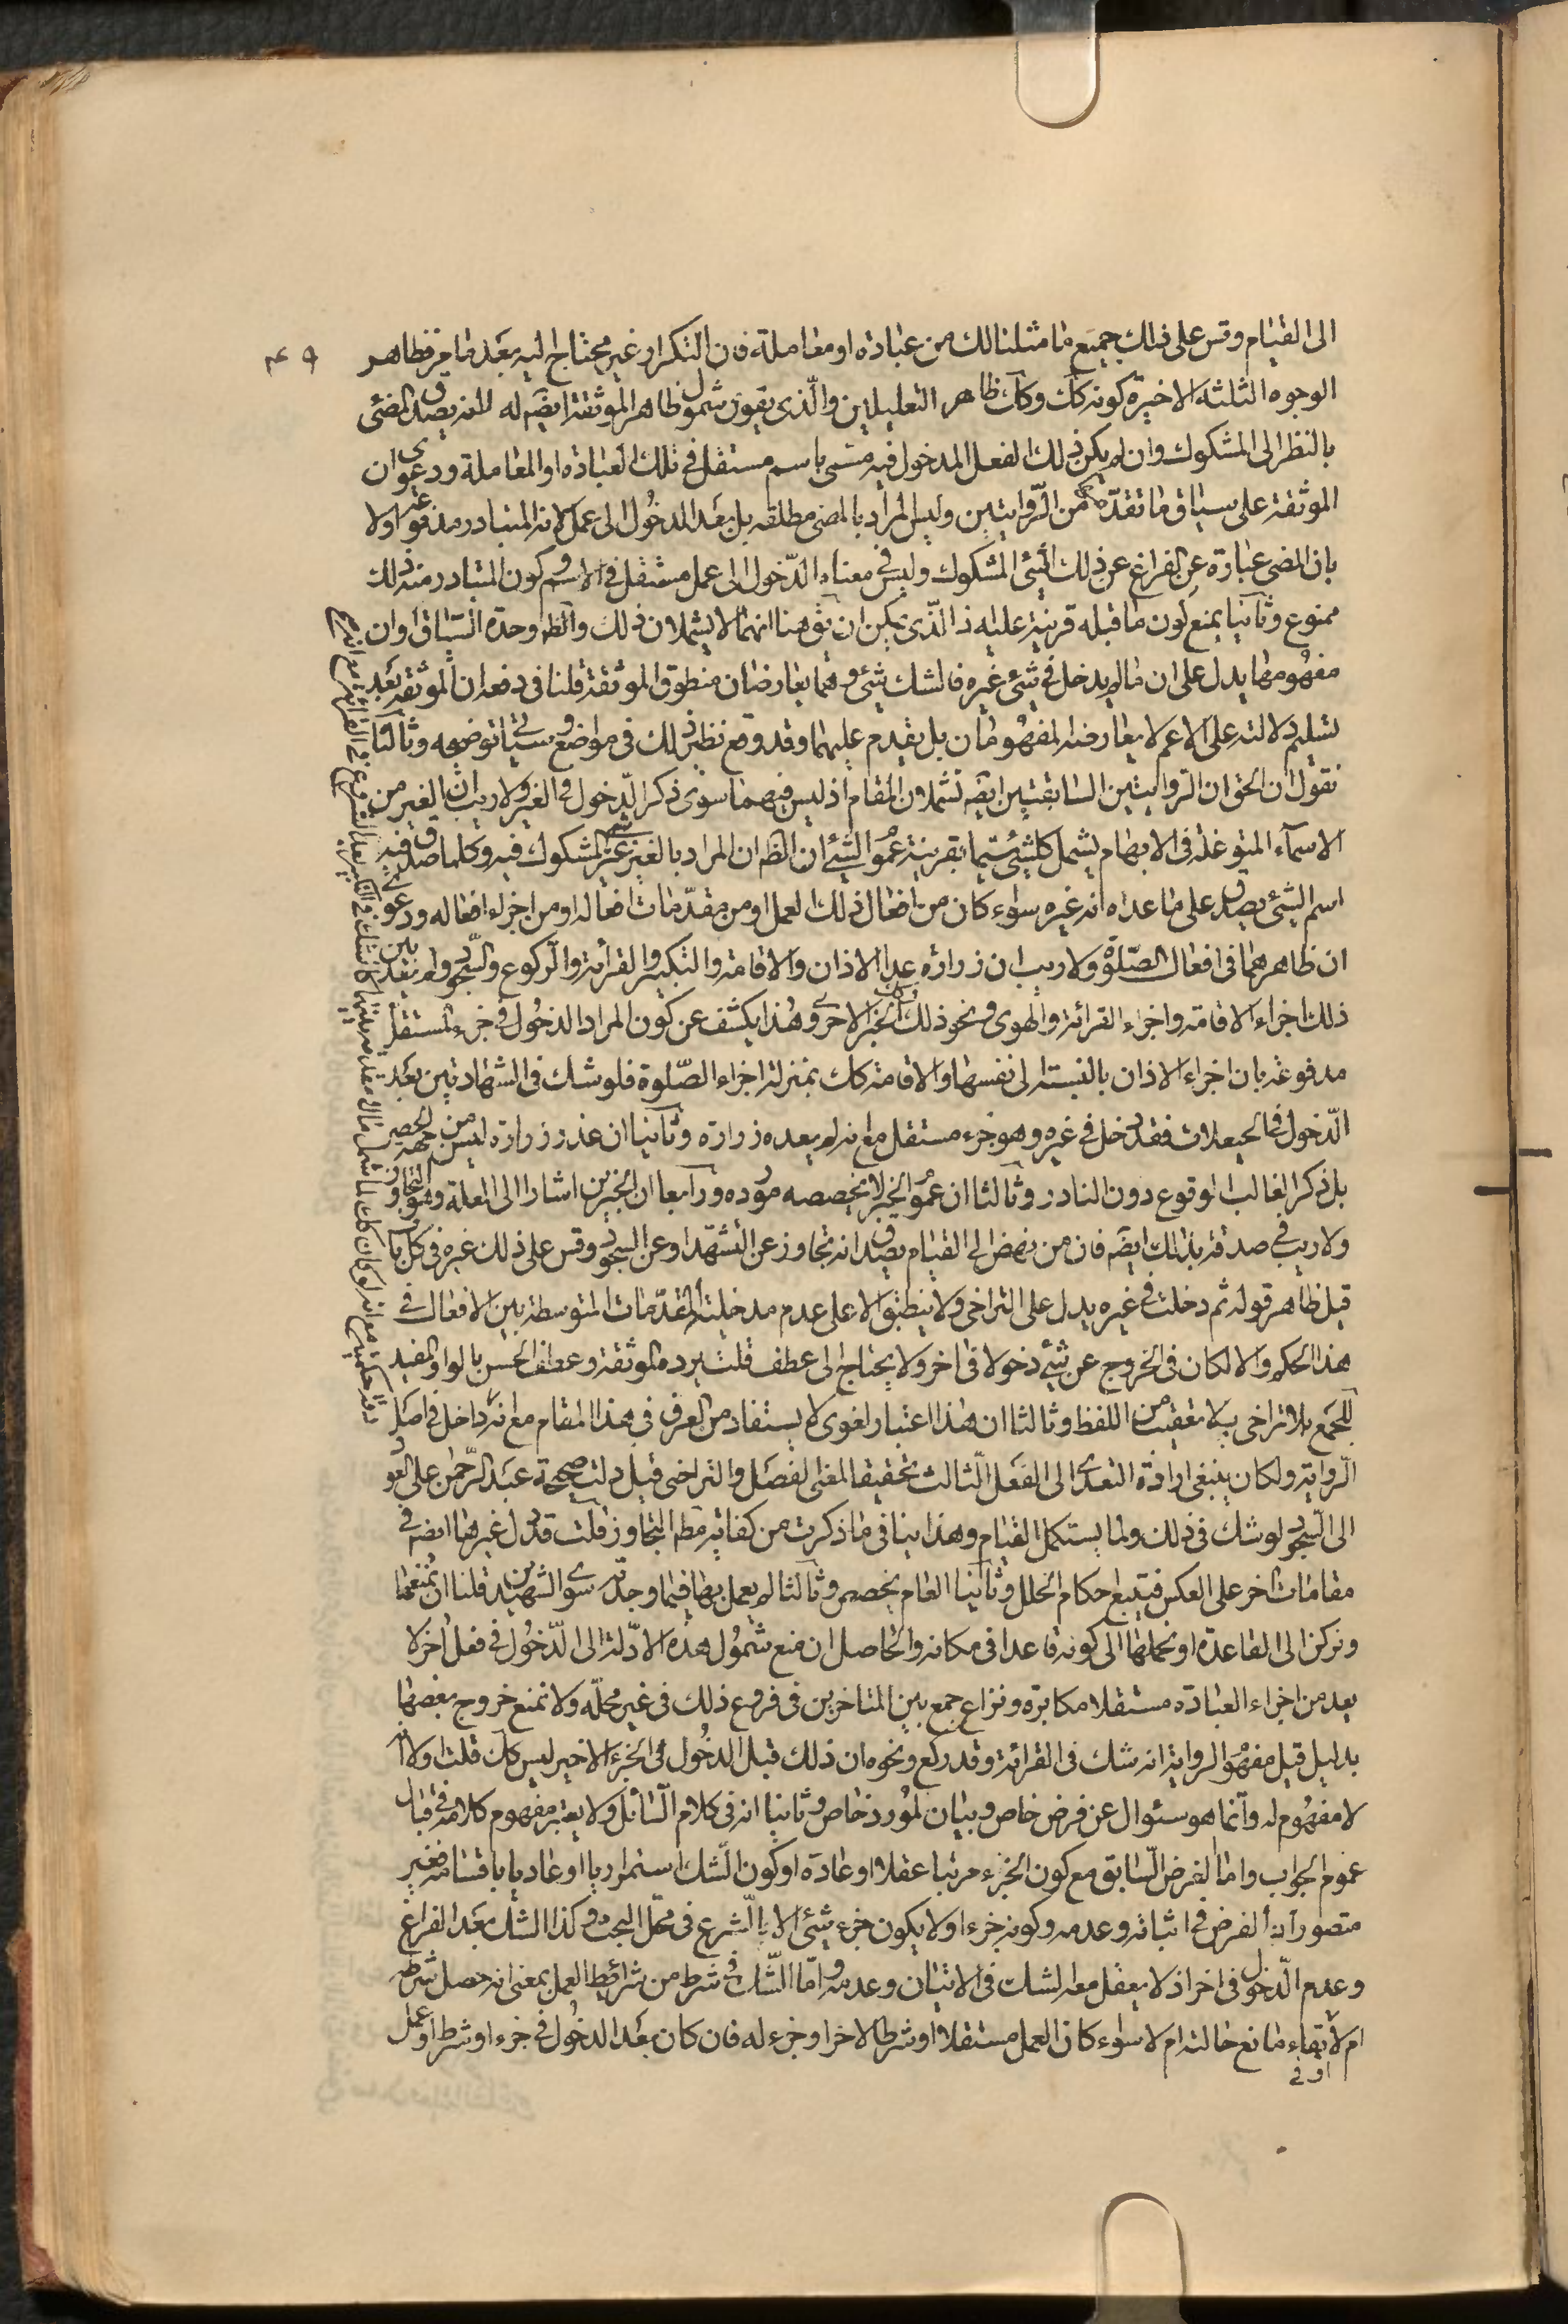 الى القيام وقس على ذلك جميع ما مثلنا لك من عبادة او معاملة فان التكرار غير محتاج اليه بعد ما مر فظاهر
۴۹
الوجوه الثلثة الاخيرة كونه كك وكك ظاهر التعليلين والذى يقوى شمول ظاهر الموثقة ايضه له لانه يصدق المضى
بالنظر الى المشكوك وان لم يكن ذلك الفعل المدخول فيه مسمى باسم مستقل فى تلك العبادة او المعاملة ودعوى ان
الموثقة على سياق ما تقدمه من الروايتين وليس المراد بالمضى مطلقه بل بعد الدخول الى عمل لانه المتبادر مدفوعة اولا
بان المضى عبارة عن الفراغ عن ذلك الشئ المشكوك وليس فى معناه الدخول الى عمل مستقل فى الاسم وكون المتبادر منه ذلك
ممنوع وثانيا بمنع كون ما قبله قرينة عليه ذا الذى يمكن ان يق هنا انهما لا يشملان ذلك والظ وحدة السياق وان
مفهومهما يدل على ان ما لم يدخل فى شئ غيره فالشك شئ وهما يعارضان منطوق الموثقة قلنا فى دفعه ان الموثقة بعد
تسليم دلالته على الاعم لا يعارضه المفهومان بل يقدم عليهما وقد وقع نظير ذلك فى مواضع وسيأتى توضيحه وثالثا
نقول ان الحق ان الروايتين السابقتين ايضه تشملان المقام اذ ليس فيهما سوى ذكر الدخول فى الغير ولا ريب ان الغير من
الاسماء المتوغلة فى الابهام يشمل كلشئ سيما بقرينة عموم الشئ ان الظ ان المراد بالغير غير المشكوك فيه وكلما صدق فيه
اسم الشئ يصدق على ما عداه انه غيره سواء كان من افعال ذلك العمل او من مقدمات افعاله او من اجزاء افعاله ودعوى
ان ظاهرهما فى افعال الصلوة ولا ريب ان زرارة عد الاذان والاقامة والتكبير والقرائة والركوع والسجود ولم يعد بين
ذلك اجزاء الاقامة واجزاء القرائة والهوى ونحو ذلك وكك الخبر الاخر وهذا يكشف عن كون المراد الدخول فى جزء مستقل
مدفوعة بان اجزاء الاذان بالنسبة الى نفسها والاقامة كك بمنزلة اجزاء الصلوة فلو شك فى الشهادتين بعد
الدخول فى الحيعلات فقد دخل فى غيره وهو جزء مستقل مع انه لم يعده زرارة وثانيا ان عذر زرارة ليس من جهة الحصر
بل ذكر الغالب الوقوع دون النادر وثالثا ان عموم الخبر لا يخصصه مورده ورابعا ان الخبرين اشارا الى العلة وهو التجاوز
ولا ريب فى صدقه بذلك ايضه فان من نهض الى القيام يصدق انه تجاوز عن التشهد او عن السجود وقس على ذلك غيره فى كل باب
قيل ظاهر قوله ثم دخلت فى غيره يدل على التراخى ولا ينطبق الا على عدم مدخلية المقدمات المتوسطة بين الافعال فى
هذا الحكم والا لكان فى الخروج عن شئ دخولا فى اخر ولا يحتاج الى عطف قلت يرده الموثقة وعطف الحسن بالواو المفيد
للجمع بلا تراخى بلا تعقيب من اللفظ وثالثا ان هذا اعتبار لغوى لا يستفاد من العرف فى هذا المقام مع انه داخل فى اصل
الرواية ولكان ينبغى ارادة التعدى الى الفعل الثالث تحقيقا لمعنى الفصل والتراخى قيل دلت صحيحة عبد الرحمن على العود
الى السجود لو شك فى ذلك ولما يستكمل القيام وهذا ينافى ما ذكرت من كفاية مط التجاوز قلت قد دل غيرها ايضه فى
مقامات اخر على العكس فيتبع احكام الخلل وثانيا العام يخصص وثالثا لم يعمل بها فيما وجد سوى الشهيد قلنا ان نمنعها
ونركن الى القاعدة او نحملها الى كونه قاعدا فى مكانه والحاصل ان منع شمول هذه الادلة الى الدخول فى فعل اخر لا
يعد من اجزاء العبادة مستقلا مكابرة ونزاع جمع بين المتاخرين فى فروع ذلك فى غير محله ولا نمنع خروج بعضها
بدليل قيل مفهوم الرواية انه شك فى القرائة وقد ركع ونحوه ان ذلك قبل الدخول فى الجزء الاخير ليس كك قلت اولا انه
لا مفهوم له وانما هو سئوال عن فرض خاص وبيان لمورد خاص وثانيا انه فى كلام السائل ولا يعتبر مفهوم كلامه فى قبال
عموم الجواب واما الفرض السابق مع كون الجزء مرتبا عقلا او عادة او كون الشك استمراريا او عاديا باقسامه فغير
متصور اذ الفرض فى اثباته وعدمه وكونه جزء او لا يكون جزء شئ الا بالشرع فى محل البحث وكذا الشك بعد الفراغ
وعدم الدخول فى اخر اذ لا يعقل معه الشك فى الاتيان وعدمه واما الشك فى شرط من شرائط العمل بمعنى انه حصل شرطه
ام لا او فى بقاء مانع حالته ام لا سواء كان العمل مستقلا او شرطا لاخر او جزء له فان كان بعد الدخول فى جزء او شرط او عمل